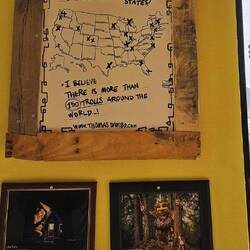 STATES
• I BELIEVE
THERE IS MORE THAN
150 TROLLS AROUND THE
WORLD..!
WWW.THOMASDAMBO.COM